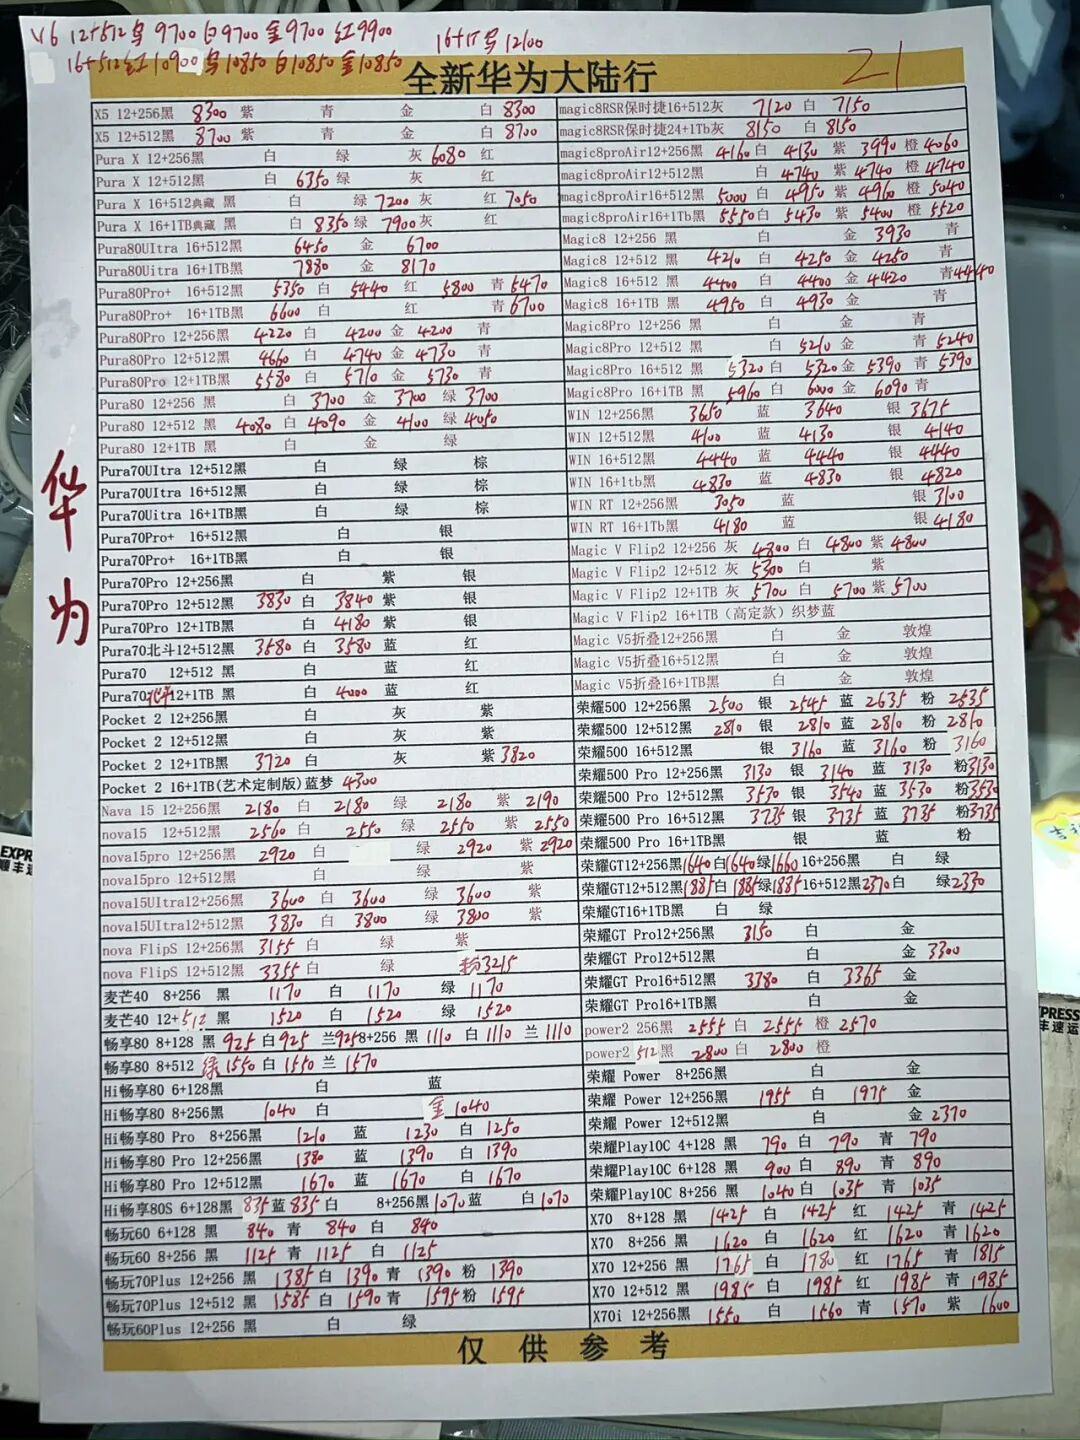 V6 12+512乌 9700 白9700 金9700 红9900
16+1T乌 12100
16+512红10900 乌10850 白10850 金10850
21
全新华为大陆行
华为
X5 12+256黑 8300 紫 青 金 白 8300
X5 12+512黑 8700 紫 青 金 白 8700
Pura X 12+256黑 白 绿 灰 6080 红
Pura X 12+512黑 白 6350 绿 灰 红
Pura X 16+512典藏 黑 白 绿 7200 灰 红 7050
Pura X 16+1TB典藏 黑 白 8350 绿 7900 灰 红
Pura80UItra 16+512黑 6450 金 6700
Pura80Uitra 16+1TB黑 7880 金 8170
Pura80Pro+ 16+512黑 5350 白 5440 红 5800 青 5470
Pura80Pro+ 16+1TB黑 6600 白 红 青 6700
Pura80Pro 12+256黑 4220 白 4200 金 4200 青
Pura80Pro 12+512黑 4660 白 4740 金 4730 青
Pura80Pro 12+1TB黑 5580 白 5710 金 5730 青
Pura80 12+256 黑 白 3700 金 3700 绿 3700
Pura80 12+512 黑 4080 白 4090 金 4100 绿 4050
Pura80 12+1TB 黑 白 金 绿
Pura70UItra 12+512黑 白 绿 棕
Pura70UItra 16+512黑 白 绿 棕
Pura70Uitra 16+1TB黑 白 绿 棕
Pura70Pro+ 16+512黑 白 银
Pura70Pro+ 16+1TB黑 白 银
Pura70Pro 12+256黑 白 紫 银
Pura70Pro 12+512黑 3830 白 3840 紫 银
Pura70Pro 12+1TB黑 白 4180 紫 银
Pura70北斗12+512黑 3580 白 3580 蓝 红
Pura70 12+512 黑 白 蓝 红
Pura70北斗12+1TB 黑 白 4000 蓝 红
Pocket 2 12+256黑 白 灰 紫
Pocket 2 12+512黑 白 灰 紫
Pocket 2 12+1TB黑 3720 白 灰 紫 3820
Pocket 2 16+1TB(艺术定制版)蓝梦 4300
Nava 15 12+256黑 2180 白 2180 绿 2180 紫 2190
nova15 12+512黑 2560 白 2550 绿 2550 紫 2550
nova15pro 12+256黑 2920 白 绿 2920 紫 2920
nova15pro 12+512黑 白 绿 紫
nova15UItra12+256黑 3600 白 3600 绿 3600 紫
nova15UItra12+512黑 3830 白 3800 绿 3800 紫
nova FlipS 12+256黑 3155 白 绿 紫
nova FlipS 12+512黑 3355 白 绿 粉3215
麦芒40 8+256 黑 1170 白 1170 绿 1170
麦芒40 12+512 黑 1520 白 1520 绿 1520
畅享80 8+128 黑 925 白 925 兰925 8+256 黑 1110 白 1110 兰 1110
畅享80 8+512 绿 1550 白 1550 兰 1570
Hi畅享80 6+128黑 白 蓝
Hi畅享80 8+256黑 1040 白 金 1040
Hi畅享80 Pro 8+256黑 1210 蓝 1230 白 1250
Hi畅享80 Pro 12+256黑 1380 蓝 1390 白 1390
Hi畅享80 Pro 12+512黑 1670 蓝 1670 白 1670
Hi畅享80S 6+128黑 835 蓝 835 白 8+256黑 1070 蓝 白 1070
畅玩60 6+128 黑 840 青 840 白 840
畅玩60 8+256 黑 1125 青 1125 白 1125
畅玩70Plus 12+256 黑 1385 白 1390 青 1390 粉 1390
畅玩70Plus 12+512 黑 1585 白 1590 青 1595 粉 1595
畅玩60Plus 12+256 黑 白 绿
magic8RSR保时捷16+512灰 7120 白 7150
magic8RSR保时捷24+1Tb灰 8150 白 8150
magic8proAir12+256黑 4160 白 4130 紫 3990 橙 4060
magic8proAir12+512黑 白 4740 紫 4740 橙 4740
magic8proAir16+512黑 5000 白 4950 紫 4960 橙 5040
magic8proAir16+1Tb黑 5550 白 5430 紫 5400 橙 5520
Magic8 12+256 黑 白 金 3930 青
Magic8 12+512 黑 4210 白 4250 金 4250 青
Magic8 16+512 黑 4400 白 4400 金 4420 青 4440
Magic8 16+1TB 黑 4950 白 4930 金 青
Magic8Pro 12+256 黑 白 金 青
Magic8Pro 12+512 黑 白 5210 金 青 5240
Magic8Pro 16+512 黑 5320 白 5320 金 5390 青 5390
Magic8Pro 16+1TB 黑 5960 白 6000 金 6090 青
WIN 12+256黑 3650 蓝 3640 银 3675
WIN 12+512黑 4100 蓝 4130 银 4140
WIN 16+512黑 4440 蓝 4440 银 4440
WIN 16+1tb黑 4830 蓝 4830 银 4820
WIN RT 12+256黑 3050 蓝 银 3100
WIN RT 16+1Tb黑 4180 蓝 银 4180
Magic V Flip2 12+256 灰 4800 白 4800 紫 4800
Magic V Flip2 12+512 灰 5300 白 紫
Magic V Flip2 12+1TB 灰 5700 白 5700 紫 5700
Magic V Flip2 16+1TB (高定款) 织梦蓝
Magic V5折叠12+256黑 白 金 敦煌
Magic V5折叠16+512黑 白 金 敦煌
Magic V5折叠16+1TB黑 白 金 敦煌
荣耀500 12+256黑 2500 银 2545 蓝 2635 粉 2535
荣耀500 12+512黑 2810 银 2810 蓝 2810 粉 2810
荣耀500 16+512黑 银 3160 蓝 3160 粉 3160
荣耀500 Pro 12+256黑 3130 银 3140 蓝 3130 粉3130
荣耀500 Pro 12+512黑 3530 银 3540 蓝 3530 粉3530
荣耀500 Pro 16+512黑 3735 银 3735 蓝 3735 粉3735
荣耀500 Pro 16+1TB黑 银 蓝 粉
荣耀GT12+256黑1640白1640绿1660 16+256黑 白 绿
荣耀GT12+512黑1885白1885绿1885 16+512黑2370白 绿2330
荣耀GT16+1TB黑 白 绿
荣耀GT Pro12+256黑 3150 白 金
荣耀GT Pro12+512黑 白 金 3300
荣耀GT Pro16+512黑 3380 白 3365 金
荣耀GT Pro16+1TB黑 白 金
power2 256黑 2555 白 2555 橙 2570
power2 512黑 2800 白 2800 橙
荣耀 Power 8+256黑 白 金
荣耀 Power 12+256黑 1955 白 1975 金
荣耀 Power 12+512黑 白 金 2370
荣耀Play10C 4+128 黑 790 白 790 青 790
荣耀Play10C 6+128 黑 900 白 890 青 890
荣耀Play10C 8+256 黑 1040 白 1035 青 1035
X70 8+128 黑 1425 白 1425 红 1425 青 1425
X70 8+256 黑 1620 白 1620 红 1620 青 1620
X70 12+256 黑 1765 白 1780 红 1765 青 1815
X70 12+512 黑 1985 白 1985 红 1985 青 1985
X70i 12+256黑 1550 白 1560 青 1570 紫 1600
仅供参考